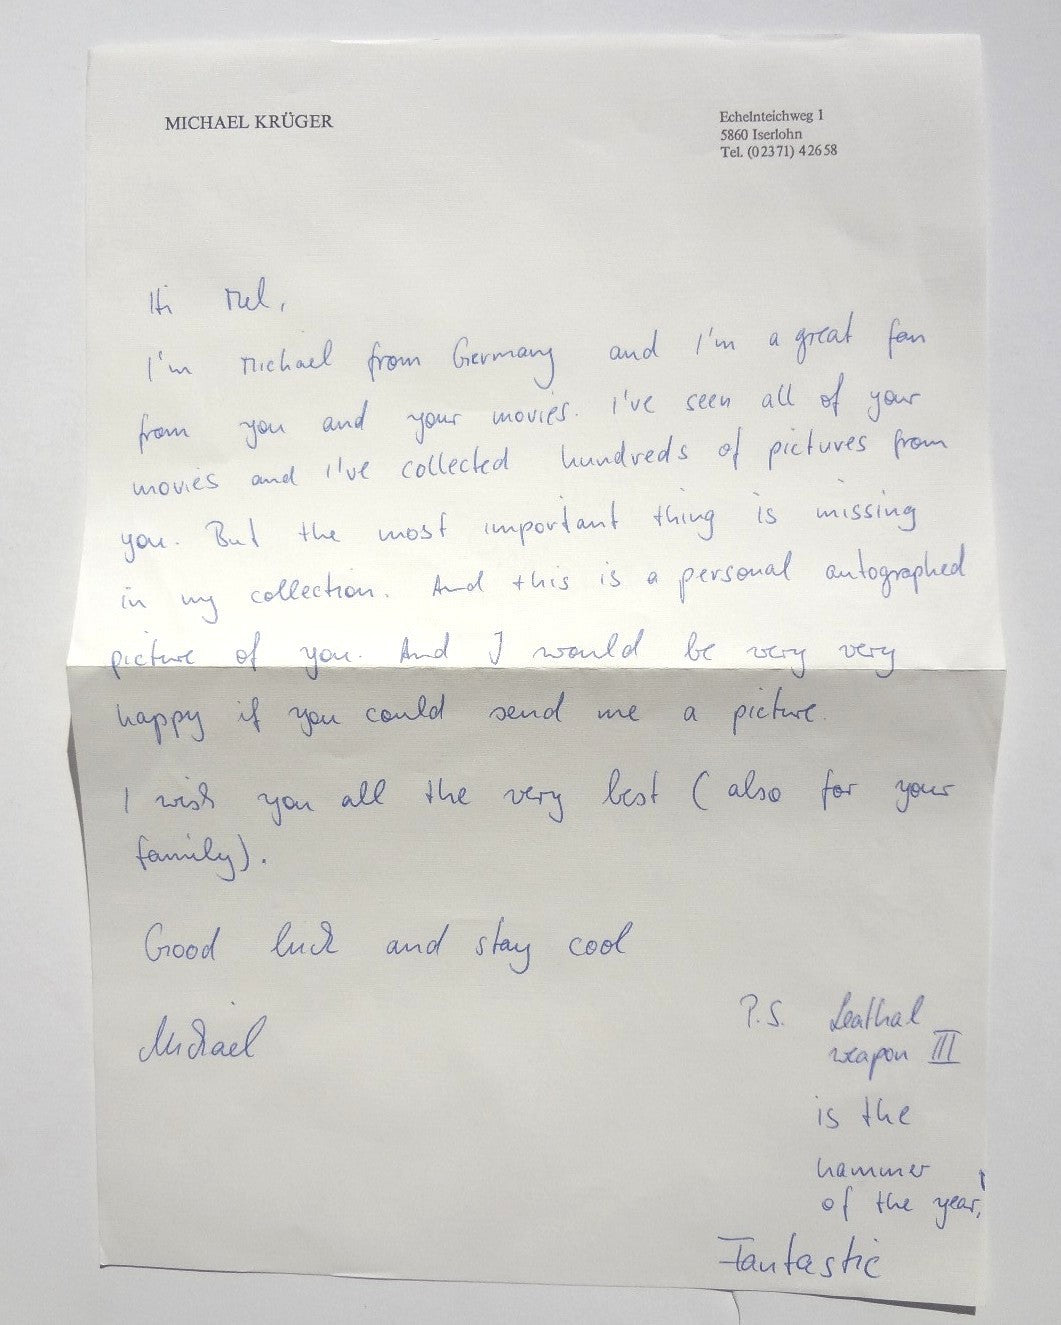 MICHAEL KRÜGER
Echelnteichweg 1
5860 Iserlohn
Tel. (02371) 42658
Hi Mel,
I'm Michael from Germany and I'm a great fan
from you and your movies. I've seen all of your
movies and I've collected hundreds of pictures from
you. But the most important thing is missing
in my collection. And this is a personal autographed
picture of you. And I would be very very
happy if you could send me a picture.
I wish you all the very best (also for your
family).
Good luck and stay cool
Michael
P.S. Leathal
weapon III
is the
hammer
of the year!
Fantastic